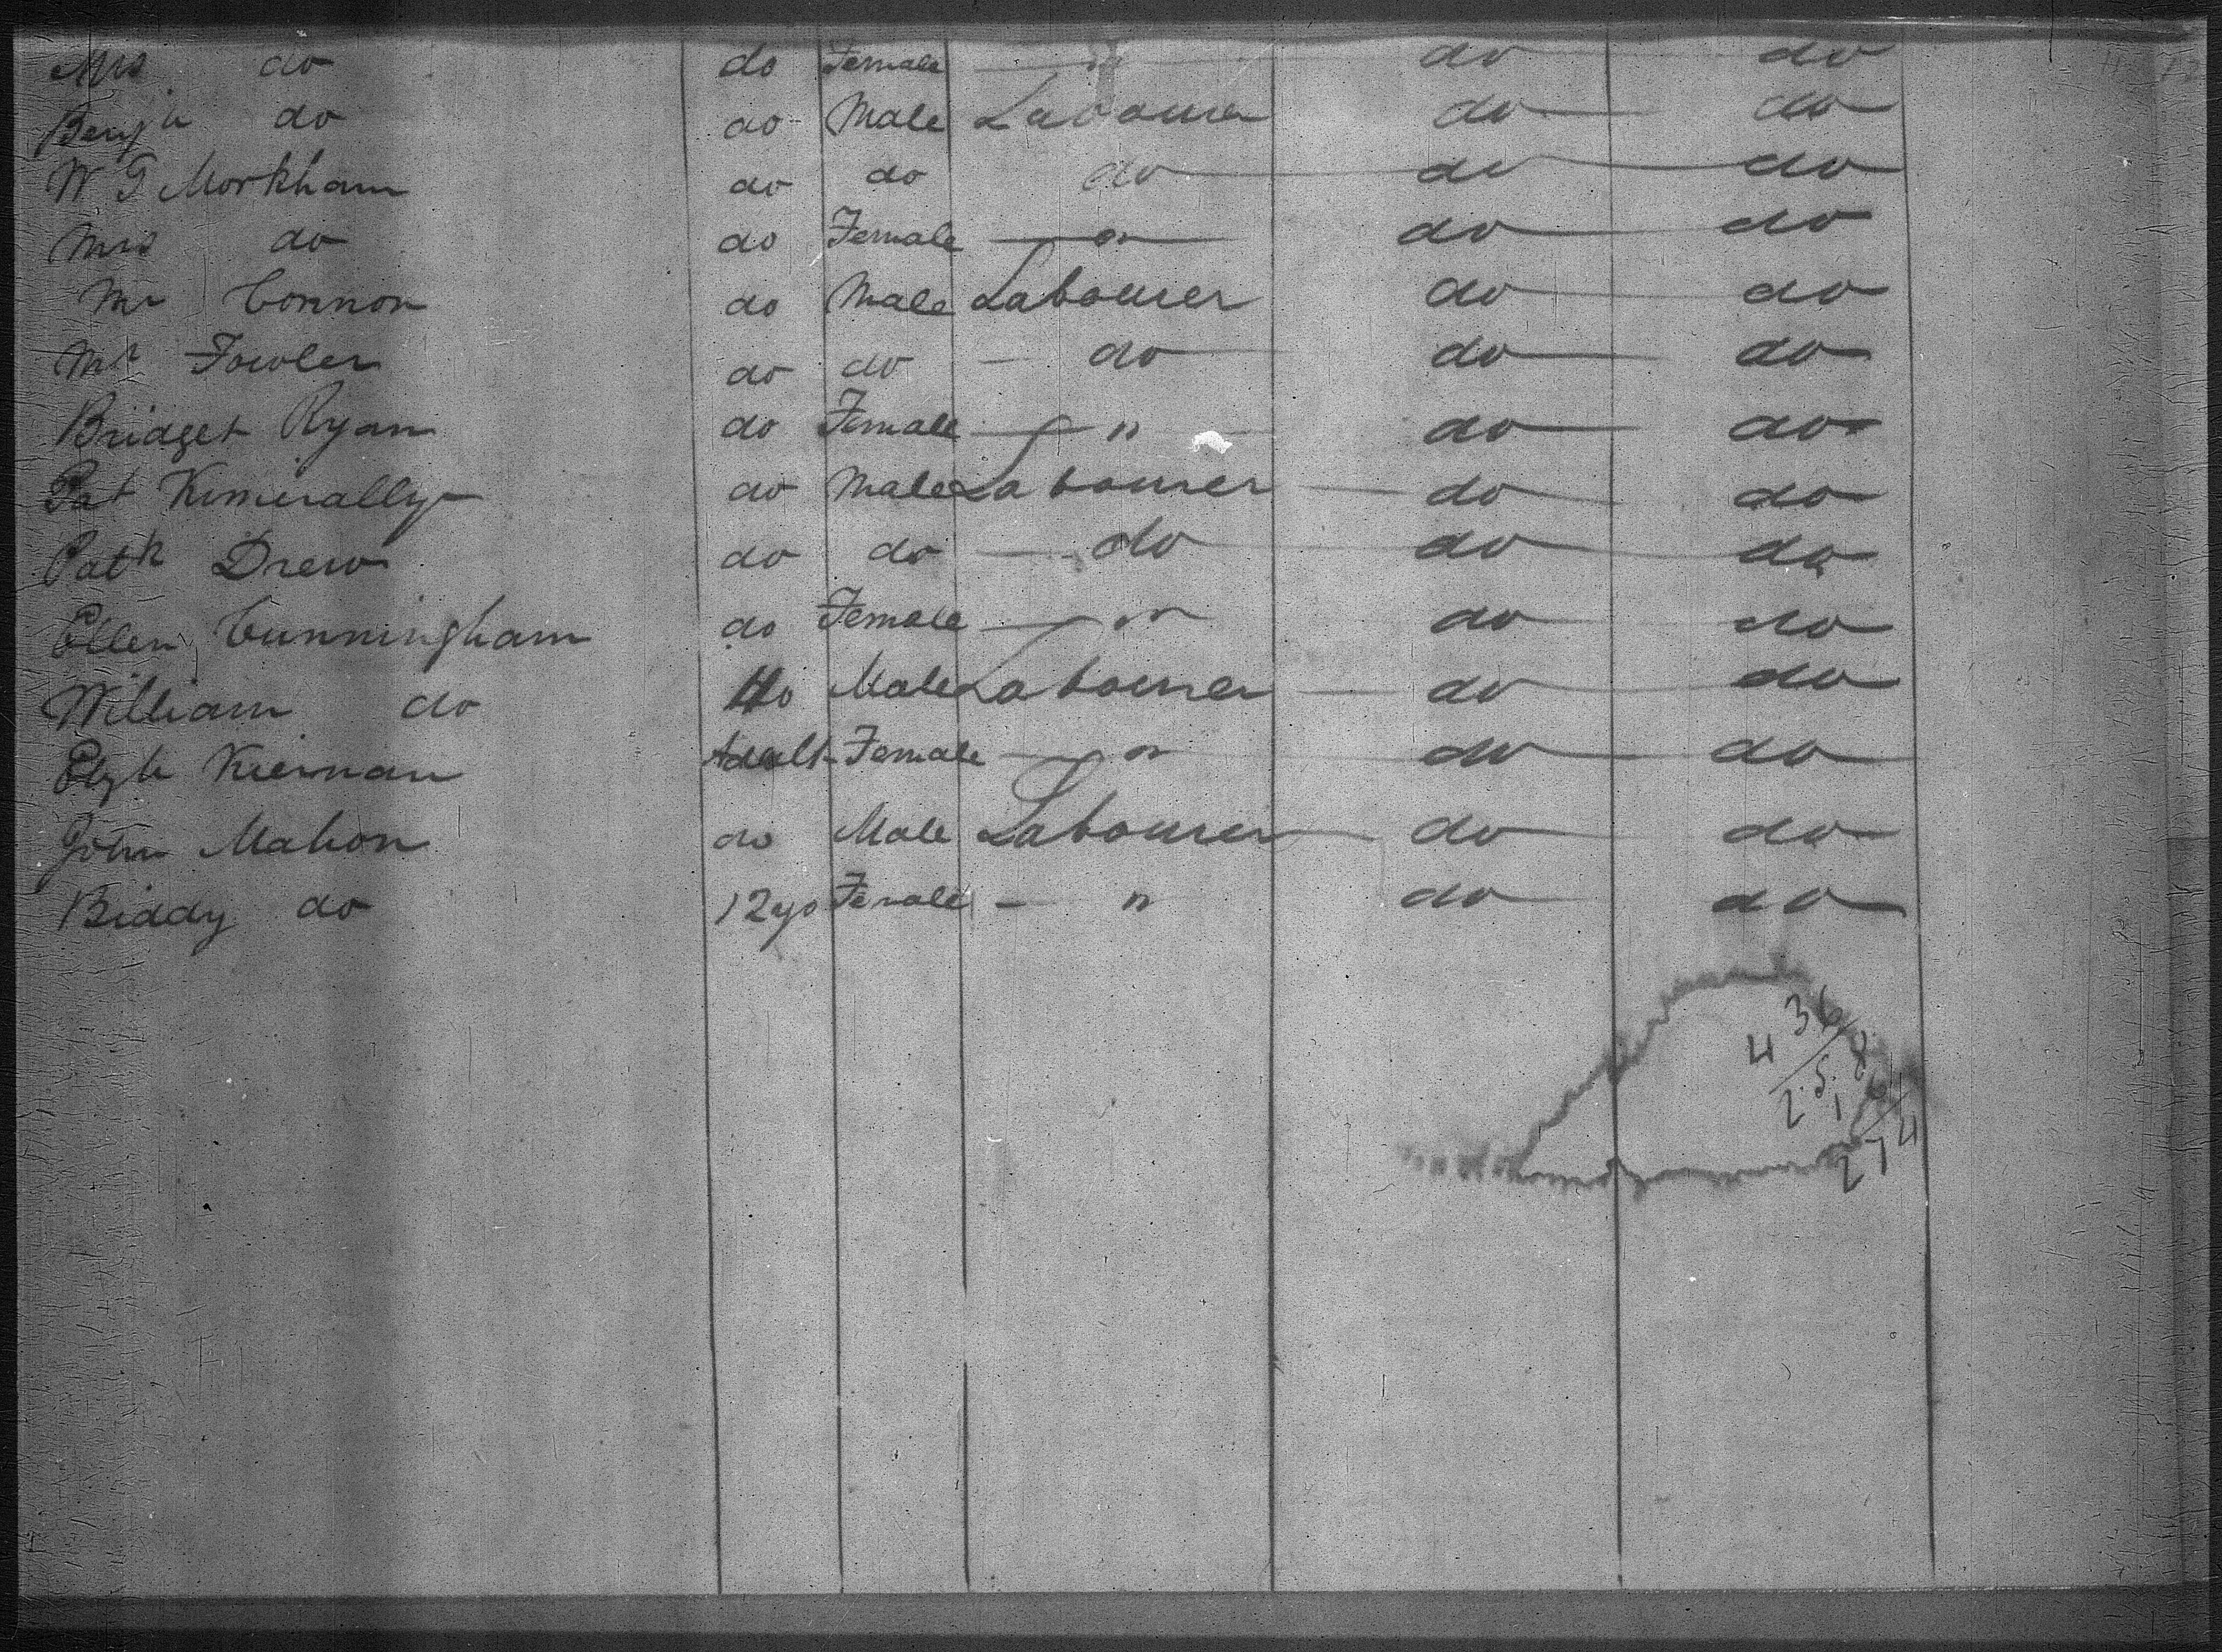 Mrs do do Female — " do do
Benjn do do Male Labourer do do
W G Morkham do do do do do
Mrs do do Female — " do do
Mr Connon do Male Labourer do do
Mr Fowler do do — do do do
Bridget Ryan do Female — " do do
Pat Kimerally do Male Labourer do do
Patk Drew do do — do do do
Ellen Cunningham do Female — " do do
William do do Male Labourer do do
Elizh Kiernan Adult Female — " do do
John Mahon do Male Labourer do do
Biddy do 12 yrs Female — " do do
4 36
2.5.8
1 6
274